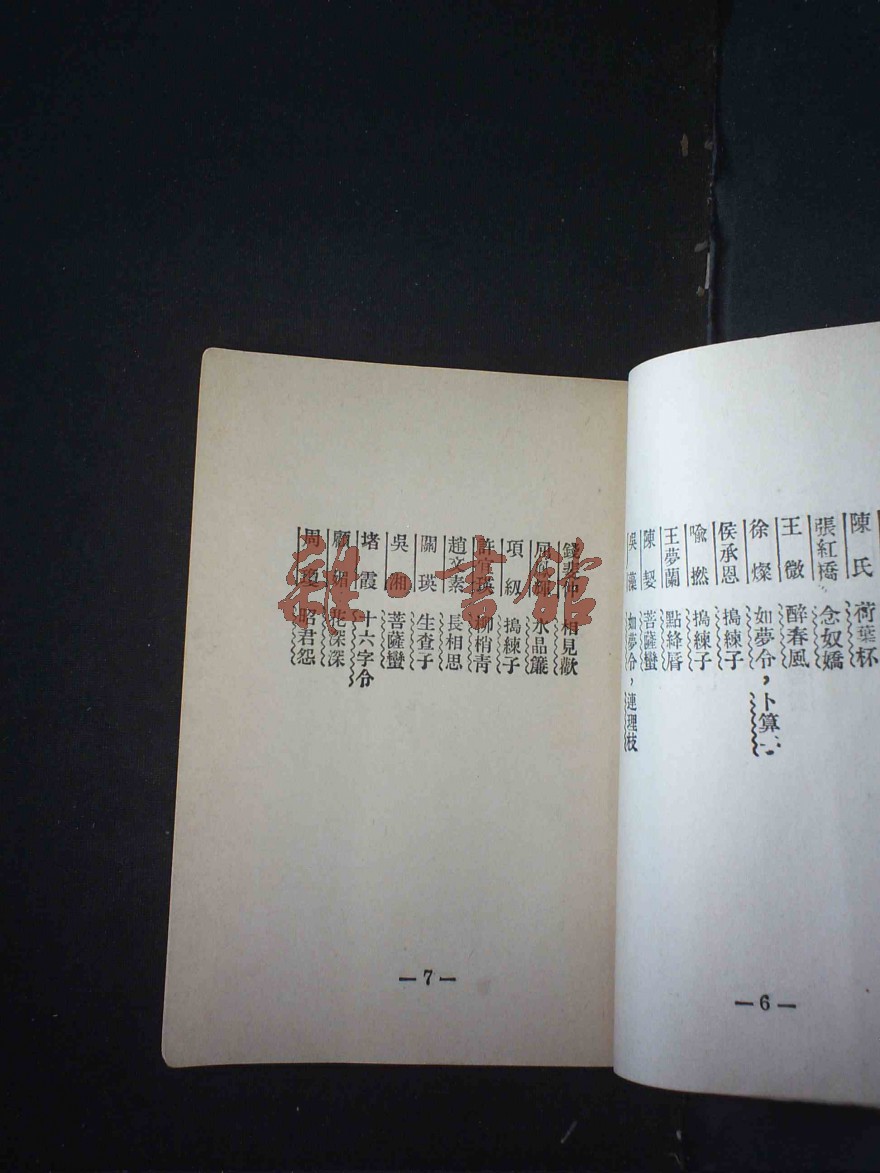 陳氏 荷葉杯
張紅橋 念奴嬌
王微 醉春風
徐燦 如夢令,卜算
侯承恩 搗練子
喩撚 搗練子
王夢蘭 點絳唇
陳契 菩薩蠻
吳藻 如夢令,連理枝
—6—
錢斐仲 相見歡
水晶簾
項紉 搗練子
許宜媖 柳梢青
趙文素 長相思
關瑛 生查子
吳湘 菩薩蠻
堵霞 十六字令
顧媚 花深深
周瓊 昭君怨
—7—
雜·書館